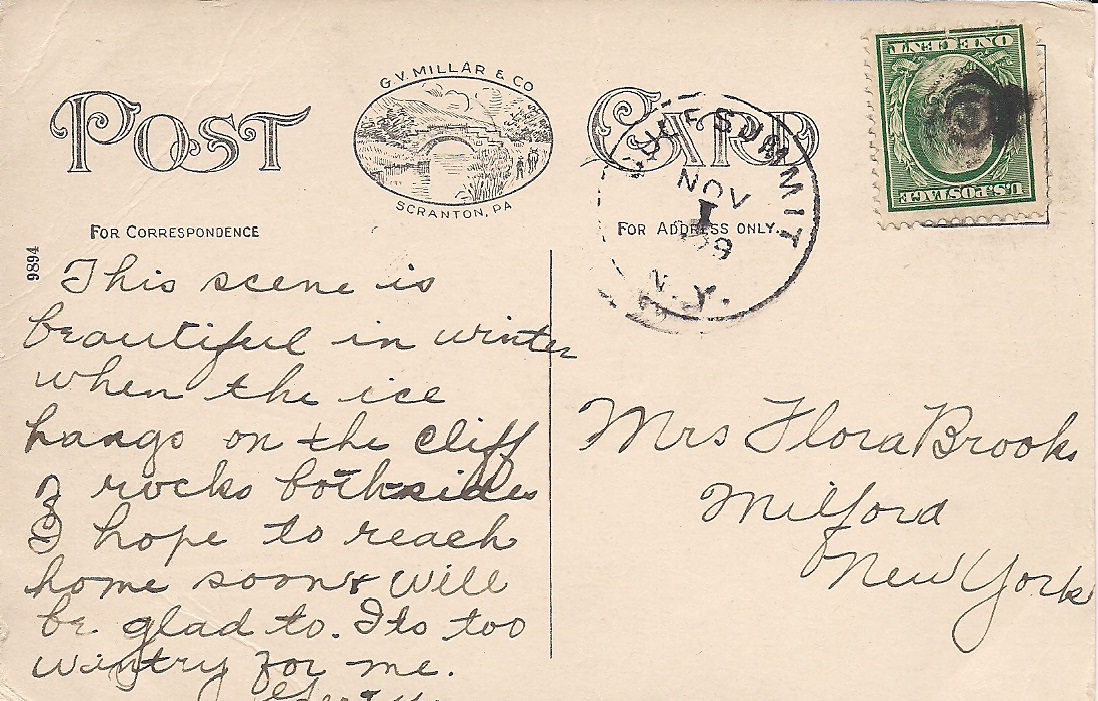 POST CARD
G.V. MILLAR & CO
SCRANTON, PA
FOR CORRESPONDENCE
FOR ADDRESS ONLY.
9894
ONE CENT
U.S. POSTAGE
SUMMIT
NOV
1
N.Y.
This scene is
beautiful in winter
when the ice
hangs on the cliff
& rocks both sides
I hope to reach
home soon & will
be glad to. Its too
wintry for me.
Mrs Flora Brooks
Milford
New York